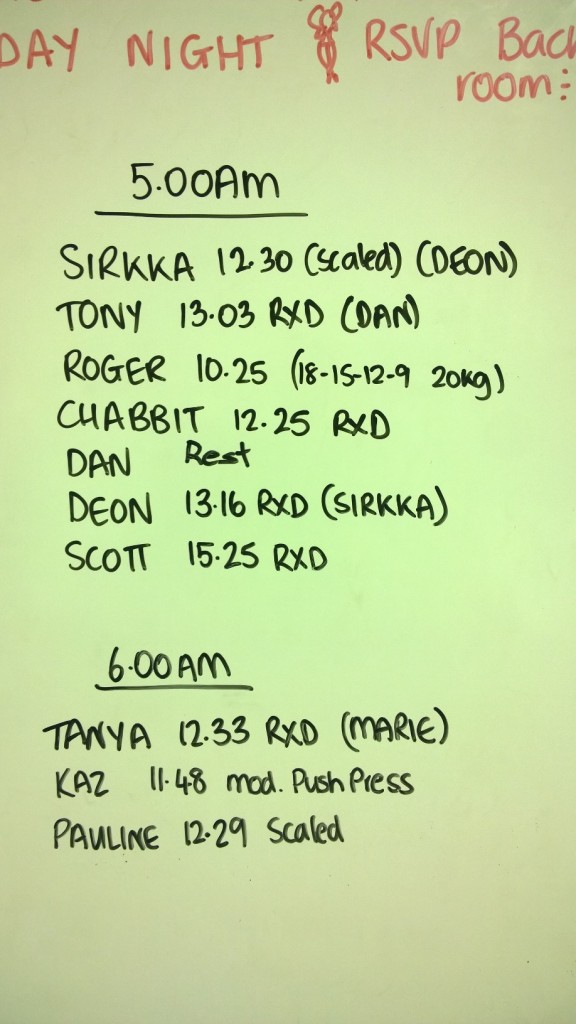 DAY NIGHT RSVP Bac
room:
5.00AM
SIRKKA 12.30 (Scaled) (DEON)
TONY 13.03 RXD (DAN)
ROGER 10.25 (18-15-12-9 20kg)
CHABBIT 12.25 RXD
DAN Rest
DEON 13.16 RXD (SIRKKA)
SCOTT 15.25 RXD
6.00AM
TANYA 12.33 RXD (MARIE)
KAZ 11.48 mod. Push Press
PAULINE 12.29 Scaled